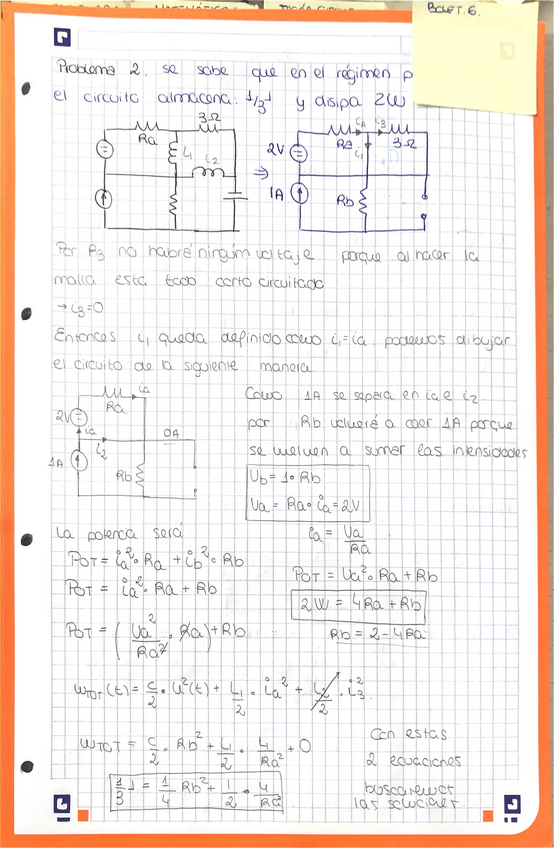 BOLET. 6.
Problema 2. se sabe que en el régimen p
el circuito almacena: 1/3 J y disipa 2W
3Ω
Ra
L1
L2
⇒
2V
1A
Ra
ia
i3
i1
3Ω
Rb
Por R3 no habrá ningún voltaje porque al hacer la
malla esta todo corto circuitado
→ i3=0
Entonces i1 queda definido como i1=ia. podemos dibujar
el circuito de la siguiente manera
ia
Ra
2V
ia
i2
0A
1A
Rb
Como 1A se separa en ia e i2
por Rb volverá a caer 1A porque
se vuelven a sumar las intensidades
Ub = 1·Rb
Va = Ra·ia = 2V
ia = Va/Ra
La potencia será
POT = ia²·Ra + ib²·Rb
POT = ia²·Ra + Rb
POT = (Va²/Ra²·Ra) + Rb
POT = Va²·Ra + Rb
2W = 4Ra + Rb
Rb = 2 - 4Ra
WTOT(t) = C/2·U²(t) + L1/2·ia² + L2/2·i3²
WTOT = C/2·Rb² + L1/2·4/Ra² + 0
1/3 J = 1/4 Rb² + 1/2·4/Ra²
Con estas
2 ecuaciones
buscaremos
las soluciones.